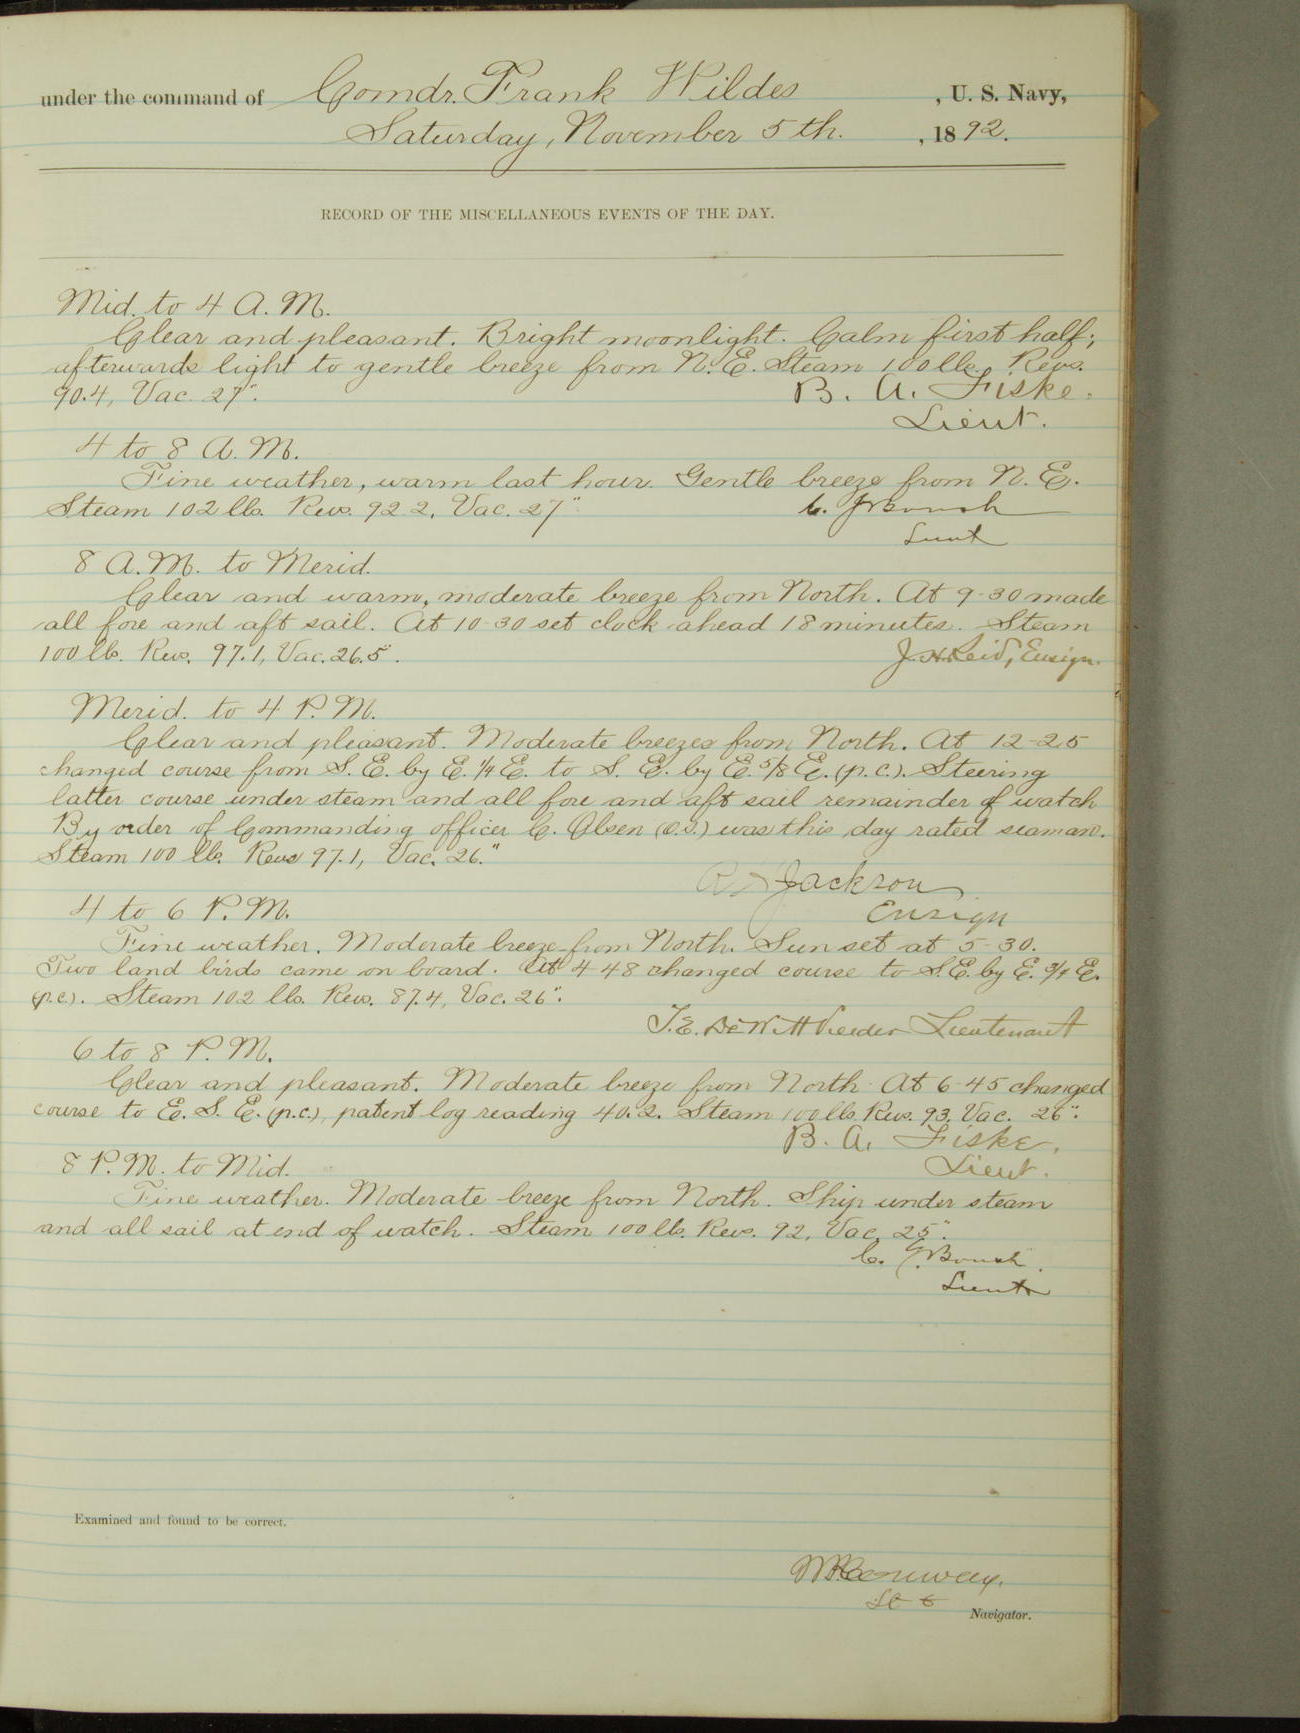 under the command of Comdr. Frank Wildes, U. S. Navy,
Saturday, November 5th., 1892.
RECORD OF THE MISCELLANEOUS EVENTS OF THE DAY.
Mid. to 4 A. M.
Clear and pleasant. Bright moonlight. Calm first half;
afterwards light to gentle breeze from N. E. Steam 100 lbs. Revs.
90.4, Vac. 27".
B. A. Fiske.
Lieut.
4 to 8 A. M.
Fine weather, warm last hour. Gentle breeze from N. E.
Steam 102 lbs. Revs. 92 2, Vac. 27"
C. J. Boush
Lieut
8 A. M. to Merid.
Clear and warm, moderate breeze from North. At 9-30 made
all fore and aft sail. At 10-30 set clock ahead 18 minutes. Steam
100 lb. Revs. 97.1, Vac. 26.5".
J. H. Reid, Ensign.
Merid. to 4 P. M.
Clear and pleasant. Moderate breezes from North. At 12-25
changed course from S. E. by E. 1/4 E. to S. E. by E. 5/8 E. (p.c.). Steering
latter course under steam and all fore and aft sail remainder of watch
By order of Commanding officer C. Olsen (O.S.) was this day rated seaman.
Steam 100 lb. Revs 97.1, Vac. 26."
Jackson
Ensign
4 to 6 P. M.
Fine weather. Moderate breeze from North. Sun set at 5-30.
Two land birds came on board. At 4 48 changed course to S. E. by E. 3/4 E.
(p.c.). Steam 102 lbs. Revs. 87.4, Vac. 26".
T. E. DeWitt Veeder Lieutenant
6 to 8 P. M.
Clear and pleasant. Moderate breeze from North. At 6-45 changed
course to E. S. E. (p.c.), patent log reading 40.2. Steam 100 lbs. Revs. 93, Vac. 26".
B. A. Fiske.
Lieut.
8 P. M. to Mid.
Fine weather. Moderate breeze from North. Ship under steam
and all sail at end of watch. Steam 100 lb. Revs. 92, Vac. 25".
C. J. Boush.
Lieut
Examined and found to be correct.
Navigator.